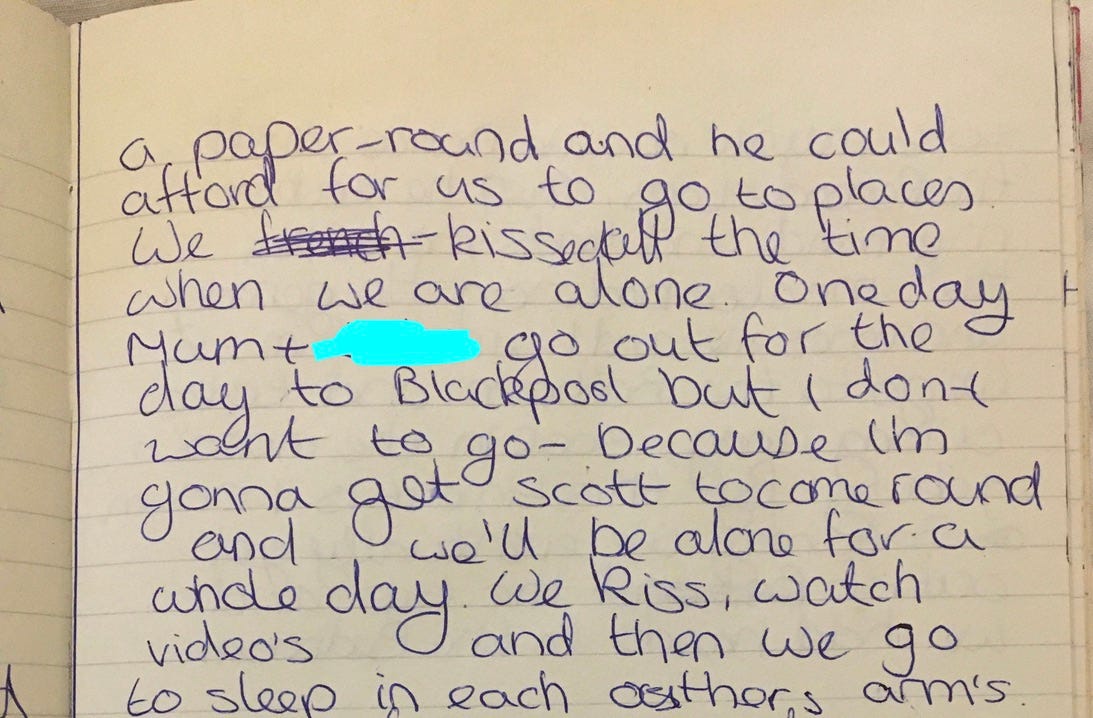 a paper-round and he could
afford for us to go to places
We french-kissed all the time
when we are alone. One day
Mum + go out for the
day to Blackpool but I dont
want to go- because I'm
gonna get scott to come round
and we'll be alone for a
whole day. We kiss, watch
video's and then we go
to sleep in each others arm's.